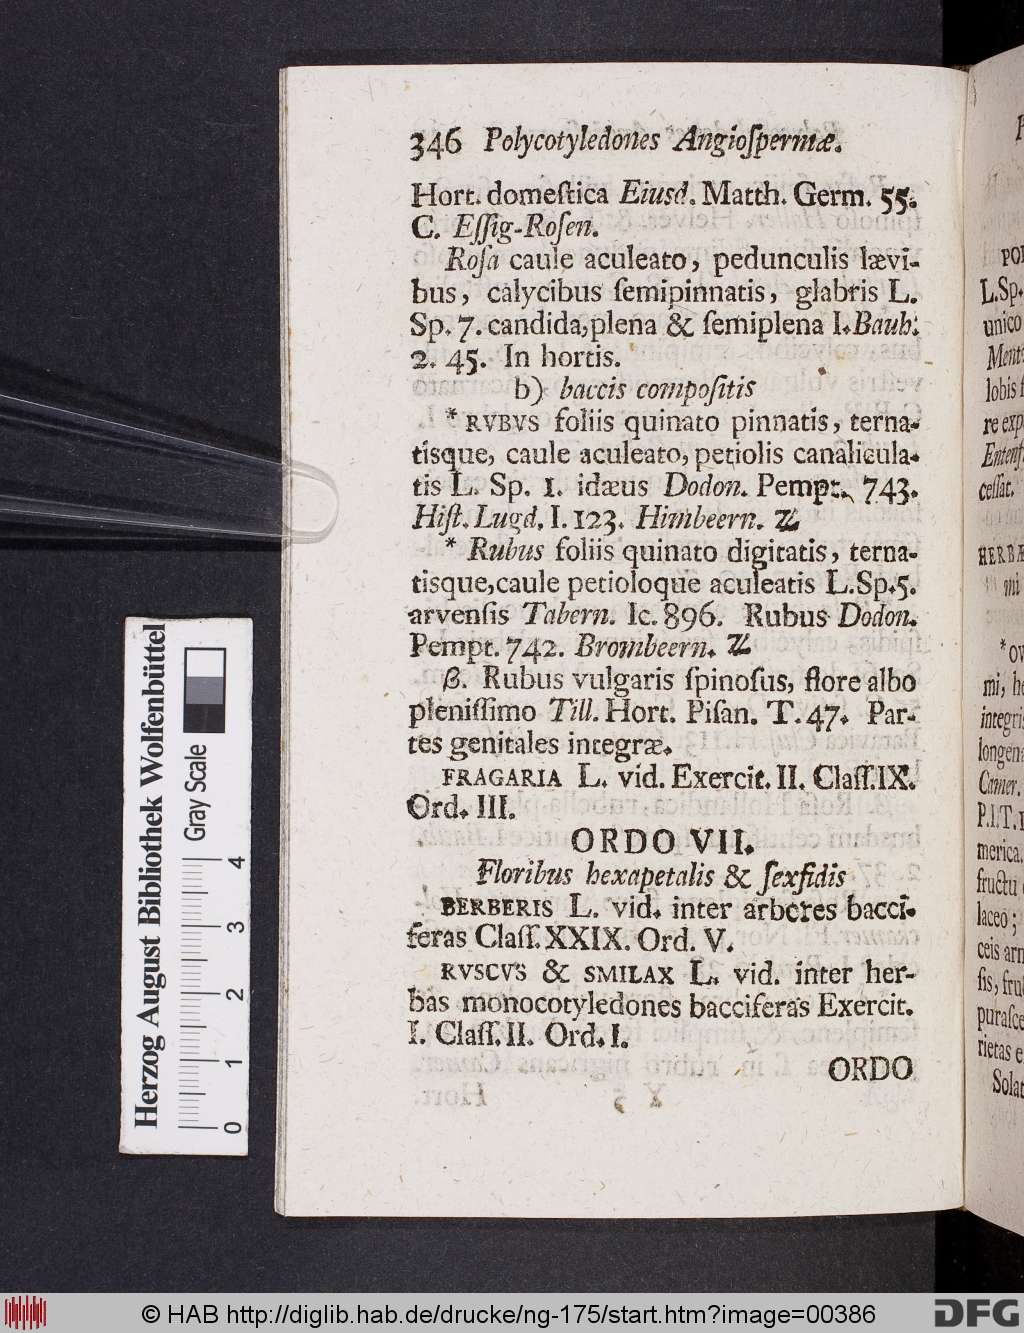 346 Polycotyledones Angioſpermæ.
Hort. domeſtica Eiusd. Matth. Germ. 55.
C. Eſſig-Roſen.
Roſa caule aculeato, pedunculis lævi-
bus, calycibus ſemipinnatis, glabris L.
Sp. 7. candida, plena & ſemiplena I. Bauh.
2. 45. In hortis.
b) baccis compoſitis
* RVBVS foliis quinato pinnatis, terna-
tisque, caule aculeato, petiolis canalicula-
tis L. Sp. 1. idæus Dodon. Pempt. 743.
Hiſt. Lugd. I. 123. Himbeern. ♃
* Rubus foliis quinato digitatis, terna-
tisque, caule petioloque aculeatis L. Sp. 5.
arvenſis Tabern. Ic. 896. Rubus Dodon.
Pempt. 742. Brombeern. ♃
β. Rubus vulgaris ſpinoſus, flore albo
pleniſſimo Till. Hort. Piſan. T. 47. Par-
tes genitales integræ.
FRAGARIA L. vid. Exercit. II. Claſſ. IX.
Ord. III.
ORDO VII.
Floribus hexapetalis & ſexfidis
BERBERIS L. vid. inter arbores bacci-
feras Claſſ. XXIX. Ord. V.
RVSCVS & SMILAX L. vid. inter her-
bas monocotyledones bacciferas Exercit.
I. Claſſ. II. Ord. I.
ORDO
L. Sp.
unico
lobis
re exp
ceſſat.
HERBÆ
mi
mi, he
integris
longena
Camer.
P. I. T. 1
merica.
fructu
laceo;
ceis arm
ſis, fru
puraſce
rietas e
Solat
Herzog August Bibliothek Wolfenbüttel
Gray Scale
0 1 2 3 4
© HAB http://diglib.hab.de/drucke/ng-175/start.htm?image=00386
DFG